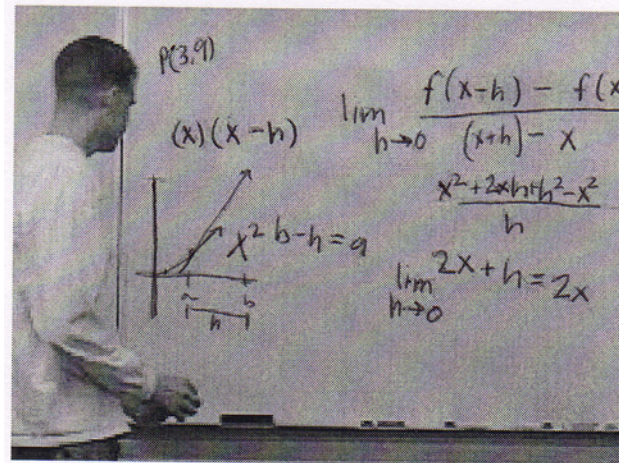 P(3,9)
(x)(x-h)
x² b-h=a
a
b
h
lim h→0 f(x-h) - f(x
(x+h) - x
x²+2xh+h²-x²
h
lim h→0 2x+h=2x